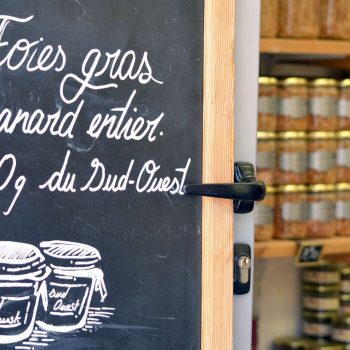 Foies gras
anard entier.
0g du Sud-Ouest
Sud
Ouest
Ouest